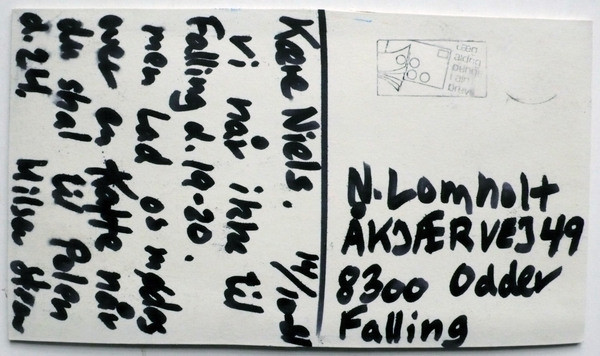 Kære Niels. 14/10-81
Vi når ikke til
Falling d. 19-20.
men lad os mødes
over en Kaffe når
du skal til Polen
d. 24.
Hilsen
N. Lomholt
ÅKJÆRVEJ 49
8300 Odder
Falling